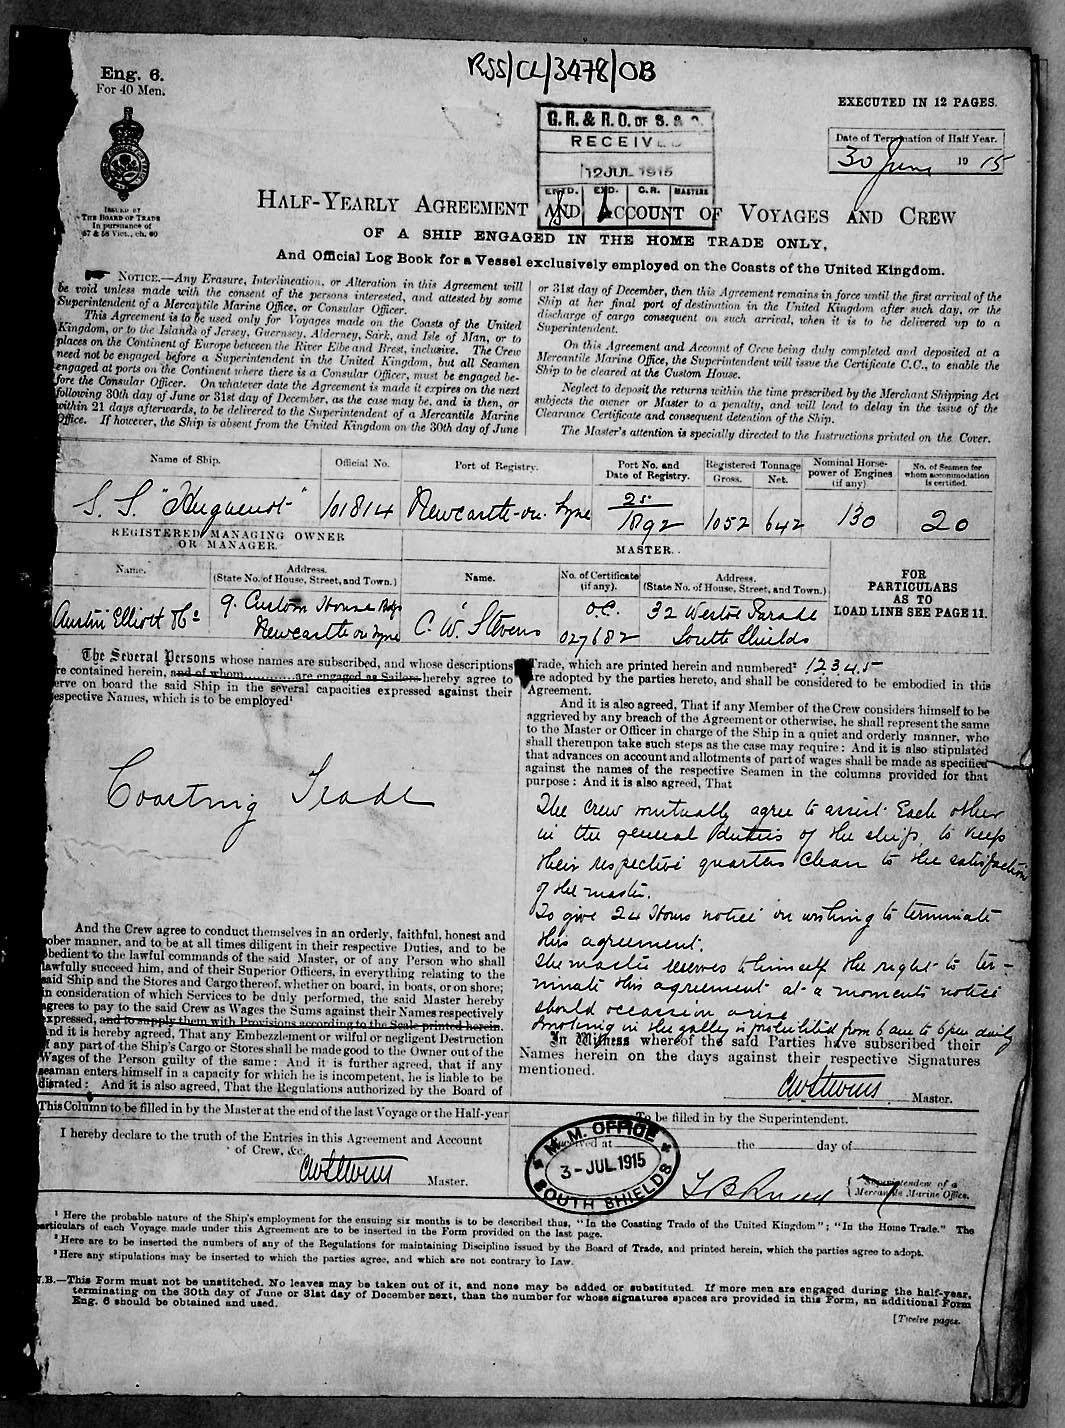 RSS/CL/3478/OB
Eng. 6.
For 40 Men.
EXECUTED IN 12 PAGES.
G. R. & R. O. OF S. & S.
RECEIVED
12 JUL 1915
ENTD. EXD. C.R. MASTERS
Date of Termination of Half Year.
30 June 1915
ISSUED BY
THE BOARD OF TRADE
In pursuance of
57 & 58 Vict., ch. 60
HALF-YEARLY AGREEMENT AND ACCOUNT OF VOYAGES AND CREW
OF A SHIP ENGAGED IN THE HOME TRADE ONLY,
And Official Log Book for a Vessel exclusively employed on the Coasts of the United Kingdom.
NOTICE.—Any Erasure, Interlineation, or Alteration in this Agreement will
be void unless made with the consent of the persons interested, and attested by some
Superintendent of a Mercantile Marine Office, or Consular Officer.
This Agreement is to be used only for Voyages made on the Coasts of the United
Kingdom, or to the Islands of Jersey, Guernsey, Alderney, Sark, and Isle of Man, or to
places on the Continent of Europe between the River Elbe and Brest, inclusive. The Crew
need not be engaged before a Superintendent in the United Kingdom, but all Seamen
engaged at ports on the Continent where there is a Consular Officer, must be engaged be-
fore the Consular Officer. On whatever date the Agreement is made it expires on the next
following 30th day of June or 31st day of December, as the case may be, and is then, or
within 21 days afterwards, to be delivered to the Superintendent of a Mercantile Marine
Office. If however, the Ship is absent from the United Kingdom on the 30th day of June
or 31st day of December, then this Agreement remains in force until the first arrival of the
Ship at her final port of destination in the United Kingdom after such day, or the
discharge of cargo consequent on such arrival, when it is to be delivered up to a
Superintendent.
On this Agreement and Account of Crew being duly completed and deposited at a
Mercantile Marine Office, the Superintendent will issue the Certificate C.C., to enable the
Ship to be cleared at the Custom House.
Neglect to deposit the returns within the time prescribed by the Merchant Shipping Act
subjects the owner or Master to a penalty, and will lead to delay in the issue of the
Clearance Certificate and consequent detention of the Ship.
The Master's attention is specially directed to the Instructions printed on the Cover.
Name of Ship. Official No. Port of Registry. Port No. and Date of Registry. Registered Tonnage Gross. Net. Nominal Horse-power of Engines (if any) No. of Seamen for whom accommodation is certified.
S. S. "Huguenot" 101814 Newcastle-on-Tyne 25/1892 1052 642 130 20
REGISTERED MANAGING OWNER
OR MANAGER.
MASTER.
Name. Address. (State No. of House, Street, and Town.) Name. No. of Certificate (if any). Address. (State No. of House, Street, and Town.)
FOR
PARTICULARS
AS TO
LOAD LINE SEE PAGE 11.
Austin Elliott & Co 9. Custom House Bdgs Newcastle on Tyne C. W. Stevens O.C. 027682 32 Westoe Parade South Shields
The Several Persons whose names are subscribed, and whose descriptions
are contained herein, and of whom............are engaged as Sailors hereby agree to
serve on board the said Ship in the several capacities expressed against their
respective Names, which is to be employed¹
Coasting Trade
And the Crew agree to conduct themselves in an orderly, faithful, honest and
sober manner, and to be at all times diligent in their respective Duties, and to be
obedient to the lawful commands of the said Master, or of any Person who shall
lawfully succeed him, and of their Superior Officers, in everything relating to the
said Ship and the Stores and Cargo thereof, whether on board, in boats, or on shore;
in consideration of which Services to be duly performed, the said Master hereby
agrees to pay to the said Crew as Wages the Sums against their Names respectively
expressed, and to supply them with Provisions according to the Scale printed herein.
And it is hereby agreed, That any Embezzlement or wilful or negligent Destruction
of any part of the Ship's Cargo or Stores shall be made good to the Owner out of the
Wages of the Person guilty of the same: And it is further agreed, that if any
seaman enters himself in a capacity for which he is incompetent, he is liable to be
disrated: And it is also agreed, That the Regulations authorized by the Board of
Trade, which are printed herein and numbered² 1 2 3 4 5
are adopted by the parties hereto, and shall be considered to be embodied in this
Agreement.
And it is also agreed, That if any Member of the Crew considers himself to be
aggrieved by any breach of the Agreement or otherwise, he shall represent the same
to the Master or Officer in charge of the Ship in a quiet and orderly manner, who
shall thereupon take such steps as the case may require: And it is also stipulated
that advances on account and allotments of part of wages shall be made as specified
against the names of the respective Seamen in the columns provided for that
purpose: And it is also agreed, That
The crew mutually agree to assist Each other
in the general duties of the ship, to keep
their respective quarters clean to the satisfaction
of the master.
To give 24 Hours notice in writing to terminate
this agreement.
The master reserves to himself the right to ter-
minate this agreement at a moments notice
should occasion arise
Smoking in the galley is prohibited from 6 am to 6 pm daily
In Witness whereof the said Parties have subscribed their
Names herein on the days against their respective Signatures
mentioned.
CW Stevens Master.
This Column to be filled in by the Master at the end of the last Voyage or the Half-year
I hereby declare to the truth of the Entries in this Agreement and Account
of Crew, &c.
CW Stevens Master.
To be filled in by the Superintendent.
Received at the day of
M. M. OFFICE
3 - JUL 1915
SOUTH SHIELDS
Superintendent of a
Mercantile Marine Office.
¹ Here the probable nature of the Ship's employment for the ensuing six months is to be described thus, "In the Coasting Trade of the United Kingdom"; "In the Home Trade." The
particulars of each Voyage made under this Agreement are to be inserted in the Form provided on the last page.
² Here are to be inserted the numbers of any of the Regulations for maintaining Discipline issued by the Board of Trade, and printed herein, which the parties agree to adopt.
³ Here any stipulations may be inserted to which the parties agree, and which are not contrary to Law.
N.B.—This Form must not be unstitched. No leaves may be taken out of it, and none may be added or substituted. If more men are engaged during the half-year,
terminating on the 30th day of June or 31st day of December next, than the number for whose signatures spaces are provided in this Form, an additional Form
Eng. 6 should be obtained and used.
[Twelve pages.